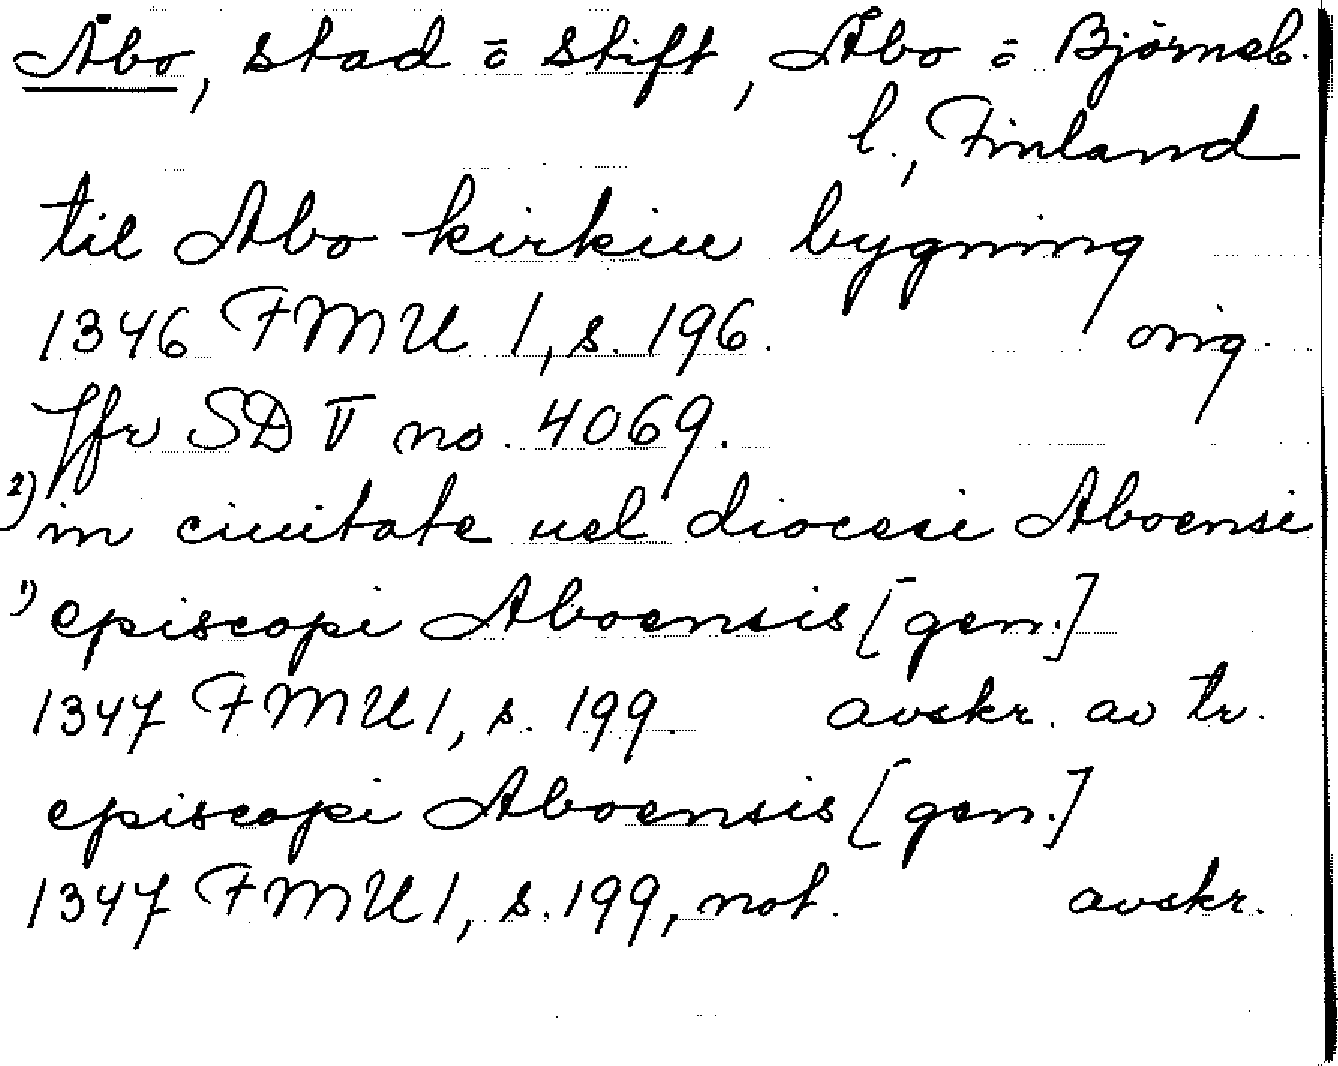 Åbo, stad o stift, Åbo o Björneb.
l., Finland
til Abo kirkiu bygning
1346 FMU 1, s. 196. orig.
Jfr SD V no. 4069.
2) in ciuitate uel diocesi Aboensi
1) episcopi Aboensis [gen.]
1347 FMU 1, s. 199. avskr. av tr.
episcopi Aboensis [gen.]
1347 FMU 1, s. 199, not. avskr.